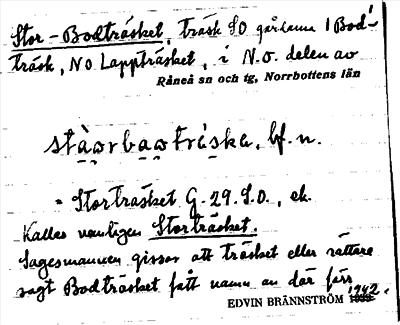 Stor-Bodträsket, träsk SO gårdarna i Bod-
träsk, NO Lappträsket, i N.O. delen av
Råneå sn och tg, Norrbottens län
stå̀ọrbạọtrǻskə, bf. n.
= Storträsket G. 29. S.O., ek.
Kallas vanligen Storträsket.
Sagesmannen gissar att träsket eller rättare
sagt Bodträsket fått namn av där förr
EDVIN BRÄNNSTRÖM 1942.